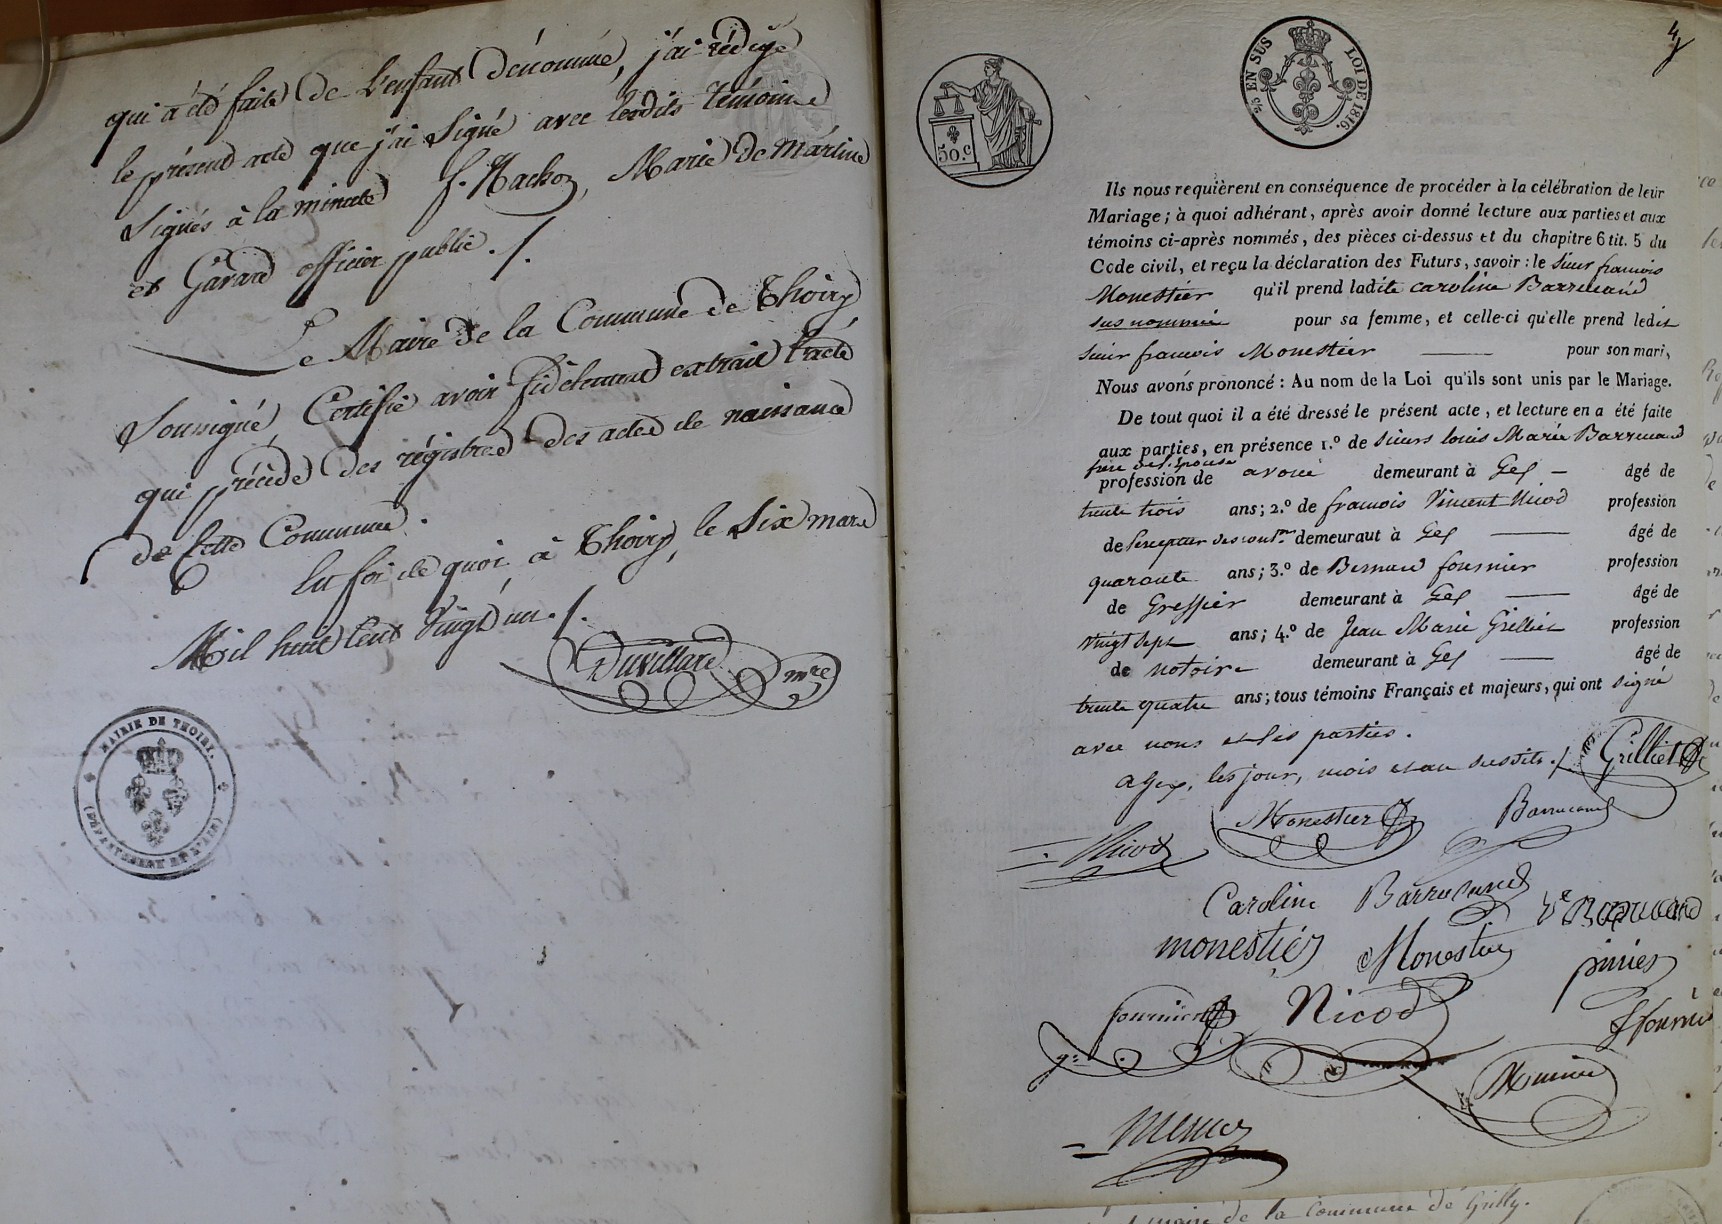 qui a été faite de l'enfant dénommé, j'ai rédigé
le présent acte que j'ai Signé avec lesdits témoins
Signés à la minute f. Machoz, Marie de Marline
et Gavard officier public ./.
Le Maire de la Commune de Thoiry
Soussigné Certifie avoir fidélement extrait l'acte
qui précède des régistres des actes de naissance
de Cette Commune.
En foi de quoi à Thoiry, le Six mars
Mil huit Cent Vingt un ./.
Duvillard mre
MAIRIE DE THOIRY.
(DÉPARTEMENT DE L'AIN)
4
50.c
EN SUS
LOI DE 1816.
Ils nous requièrent en conséquence de procéder à la célébration de leur
Mariage; à quoi adhérant, après avoir donné lecture aux parties et aux
témoins ci-après nommés, des pièces ci-dessus et du chapitre 6 tit. 5 du
Code civil, et reçu la déclaration des Futurs, savoir: le Sieur françois
Monestier qu'il prend ladite caroline Barrucand
sus nommée pour sa femme, et celle-ci qu'elle prend ledit
Sieur françois Monestier pour son mari,
Nous avons prononcé: Au nom de la Loi qu'ils sont unis par le Mariage.
De tout quoi il a été dressé le présent acte, et lecture en a été faite
aux parties, en présence 1.º de Sieurs louis Marie Barrucand
frère de l'épouse
profession de avoué demeurant à Gex – âgé de
trente trois ans; 2.º de françois Vincent Nicod profession
de Percepteur des contr.ons demeurant à Gex âgé de
quarante ans; 3.º de Bernard fournier profession
de Greffier demeurant à Gex âgé de
vingt sept ans; 4.º de Jean Marie Grilliet profession
de notaire demeurant à Gex âgé de
trente quatre ans; tous témoins Français et majeurs, qui ont signé
avec nous et les parties.
a Gex, les jour, mois et an susdits ./. Grilliet
Monestier Barrucand
Nicod
Caroline Barrucand Ve Barrucand
monestier Monestier
fournier Nicod
gr.
maire de la Commune de Grilly.